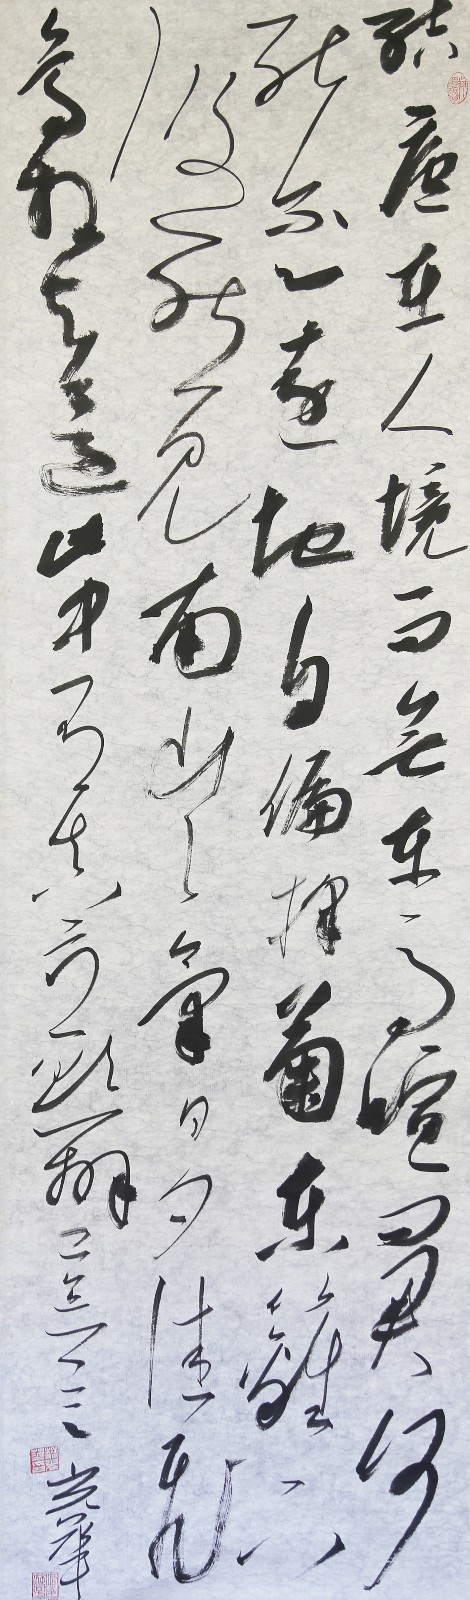 結廬在人境而無車馬喧問君何
能尔心遠地自偏採菊東籬下
悠然見南山々氣日夕佳飛
鳥相與還此中有真意欲辨已忘言